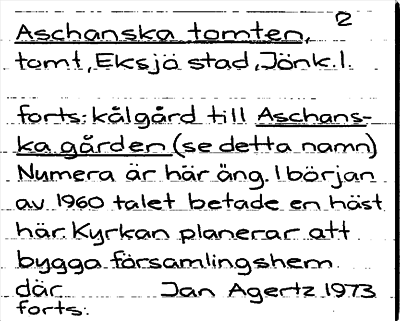 2
Aschanska tomten,
tomt, Eksjö stad, Jönk. l.
forts: kålgård till Aschans-
ka gården (se detta namn)
Numera är här äng. I början
av 1960 talet betade en häst
här. Kyrkan planerar att
bygga församlingshem
där Jan Agertz 1973
forts.